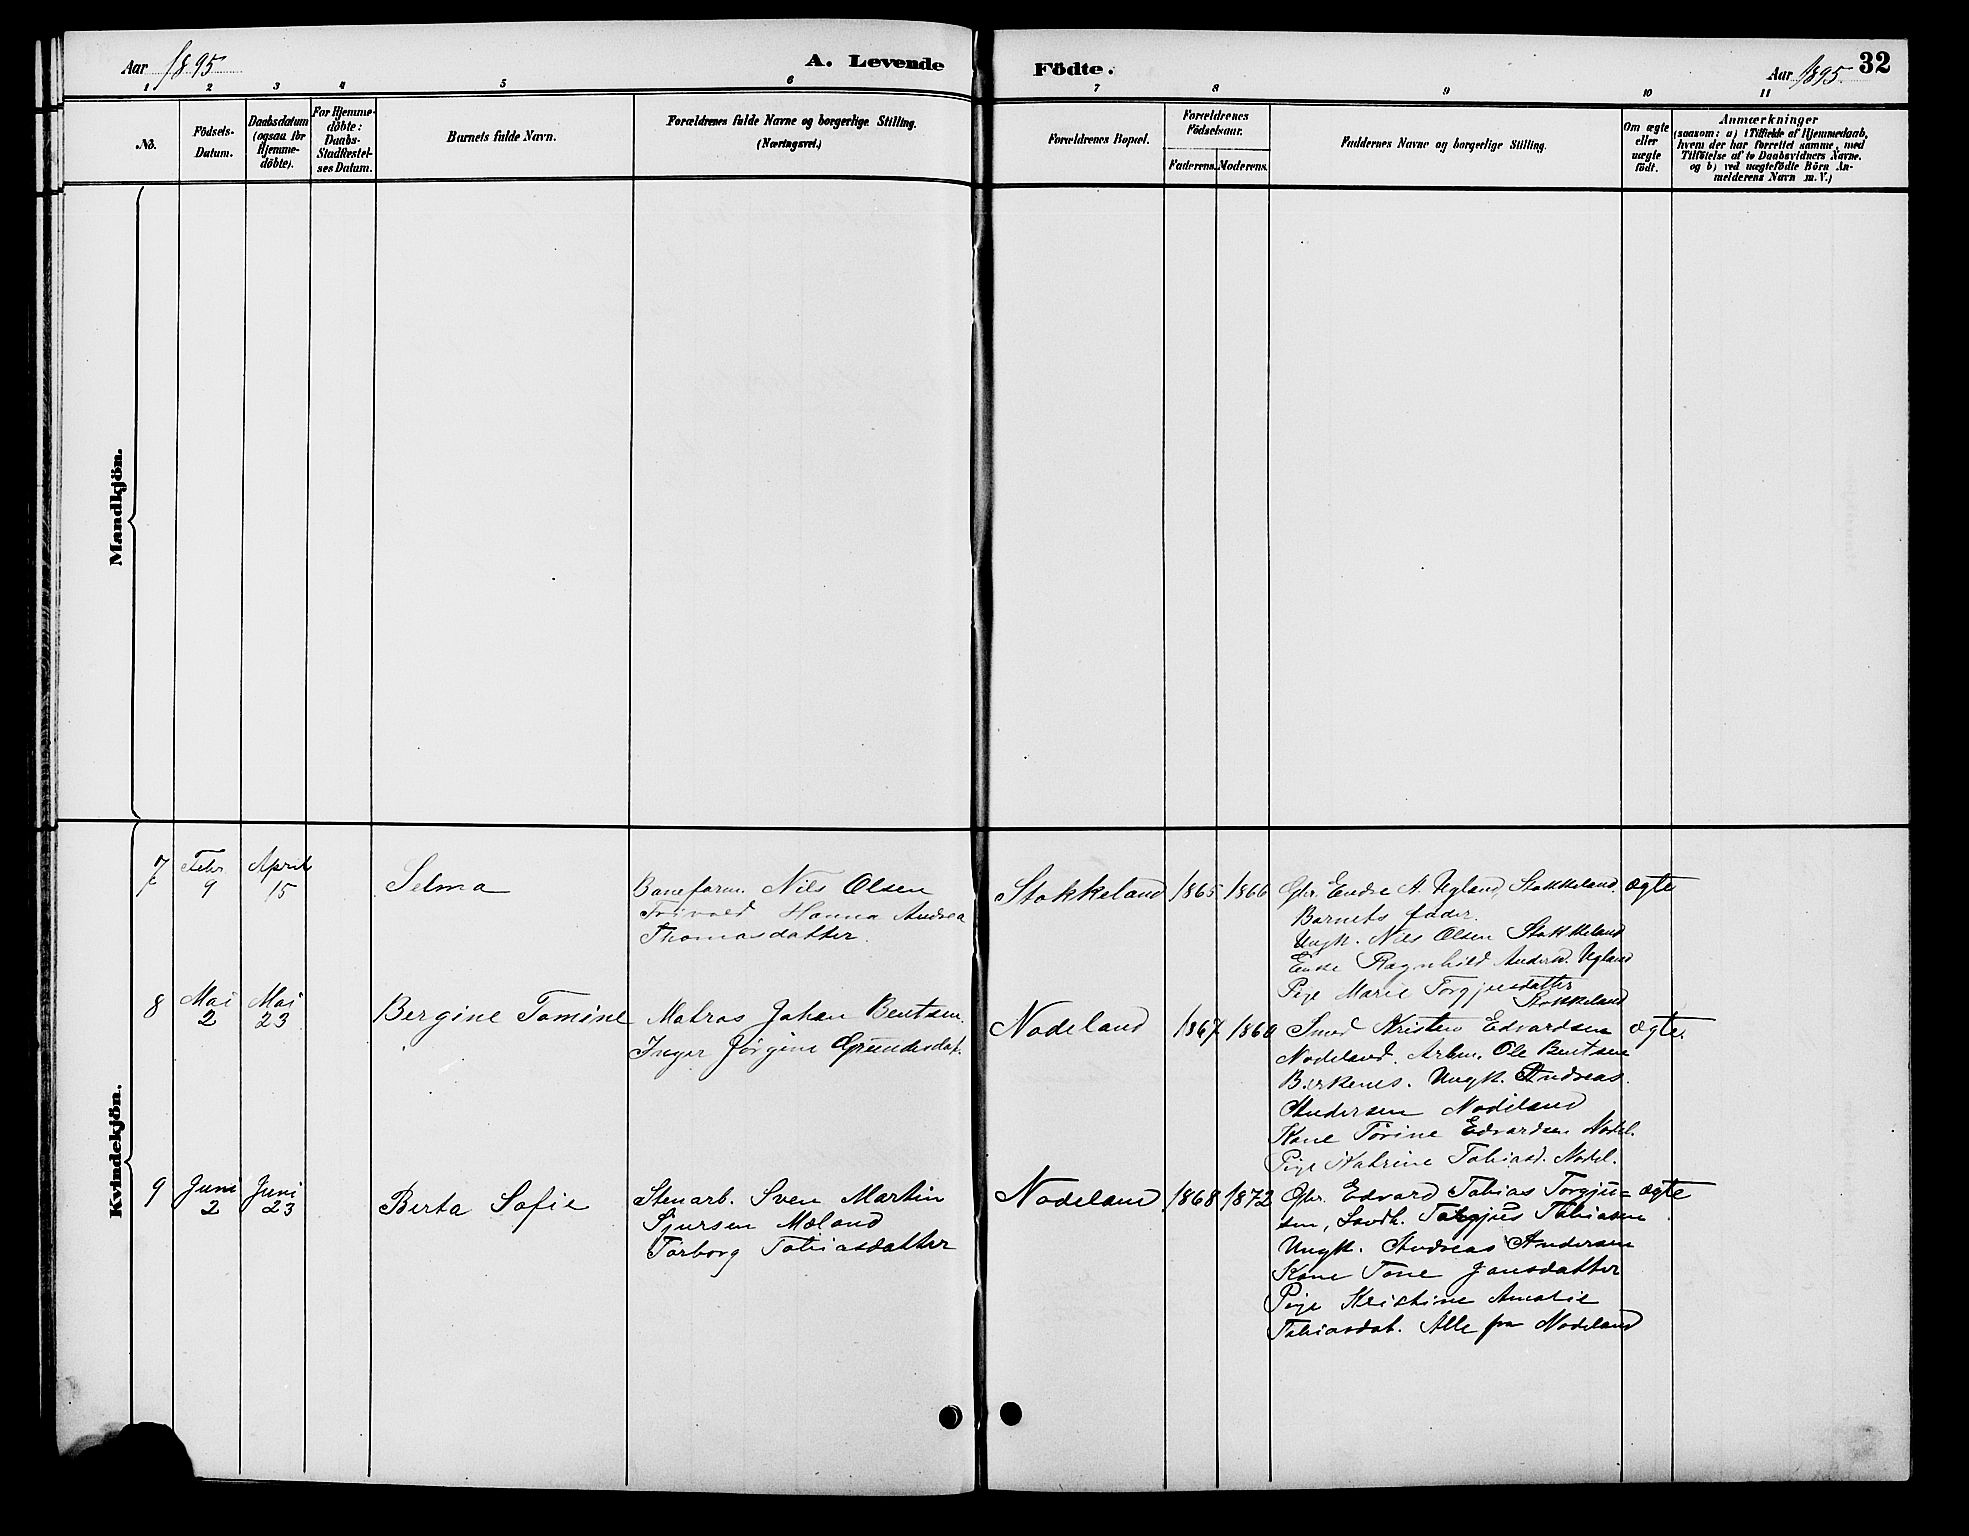 Aar 1895
A. Levende
Födte.
Aar 1895
32
1 2 3 4 5 6 7 8 9 10 11
No.
Födsels-
Datum.
Daabsdatum
(ogsaa for
Hjemme-
döbte).
For Hjemme-
döbte:
Daabs-
Stadfæstel-
ses Datum.
Barnets fulde Navn.
Forældrenes fulde Navne og borgerlige Stilling.
(Næringsvei.)
Forældrenes Bopæl.
Forældrenes
Födselsaar.
Faderens. Moderens.
Faddernes Navne og borgerlige Stilling.
Om ægte
eller
uægte
födt.
Anmærkninger
(saasom: a) i Tilfælde af Hjemmedaab,
hvem der har forrettet samme, med
Tilföielse af to Daabsvidners Navne,
og b) ved uægtefödte Börn An-
melderens Navn m. V.)
Mandkjön.
Kvindekjön.
7
Febr.
9
April
15
Selma
Baneform. Nils Olsen
Hanna Andrea
Thomasdatter.
Stokkeland
1865
1866
Gbr. Endre A. Ugland, Stokkeland.
Barnets fader.
Ungk. Nils Olsen Stokkeland
Enke Ragnhild Andersd. Ugland
Pige Marie Torgjusdatter
Stokkeland
ægte
8
Mai
2
Mai
23
Bergine Tomine
Matros Johan Bentsen.
Inger Jørgine Gundersdat.
Nodeland
1867
1860
Smed Kristen Edvardsen
Nodeland. Arbm. Ole Bentsen
Birkenes. Ungk. Andreas
Andersen Nodeland
Kone Torine Edvardsen Nodel.
Pige Katrine Tobiasd. Nodel.
ægte.
9
Juni
2
Juni
23
Berta Sofie
Stenarb. Sven Martin
Sjursen Mæland
Torborg Tobiasdatter
Nodeland
1868
1872
Gbr. Edvard Tobias Torgju=
sen, Landh. Torgjus Tobiasen
Ungk. Andreas Andersen
Kone Tone Jansdatter
Pige Kristine Amalie
Tobiasdat. Alle fra Nodeland
ægte